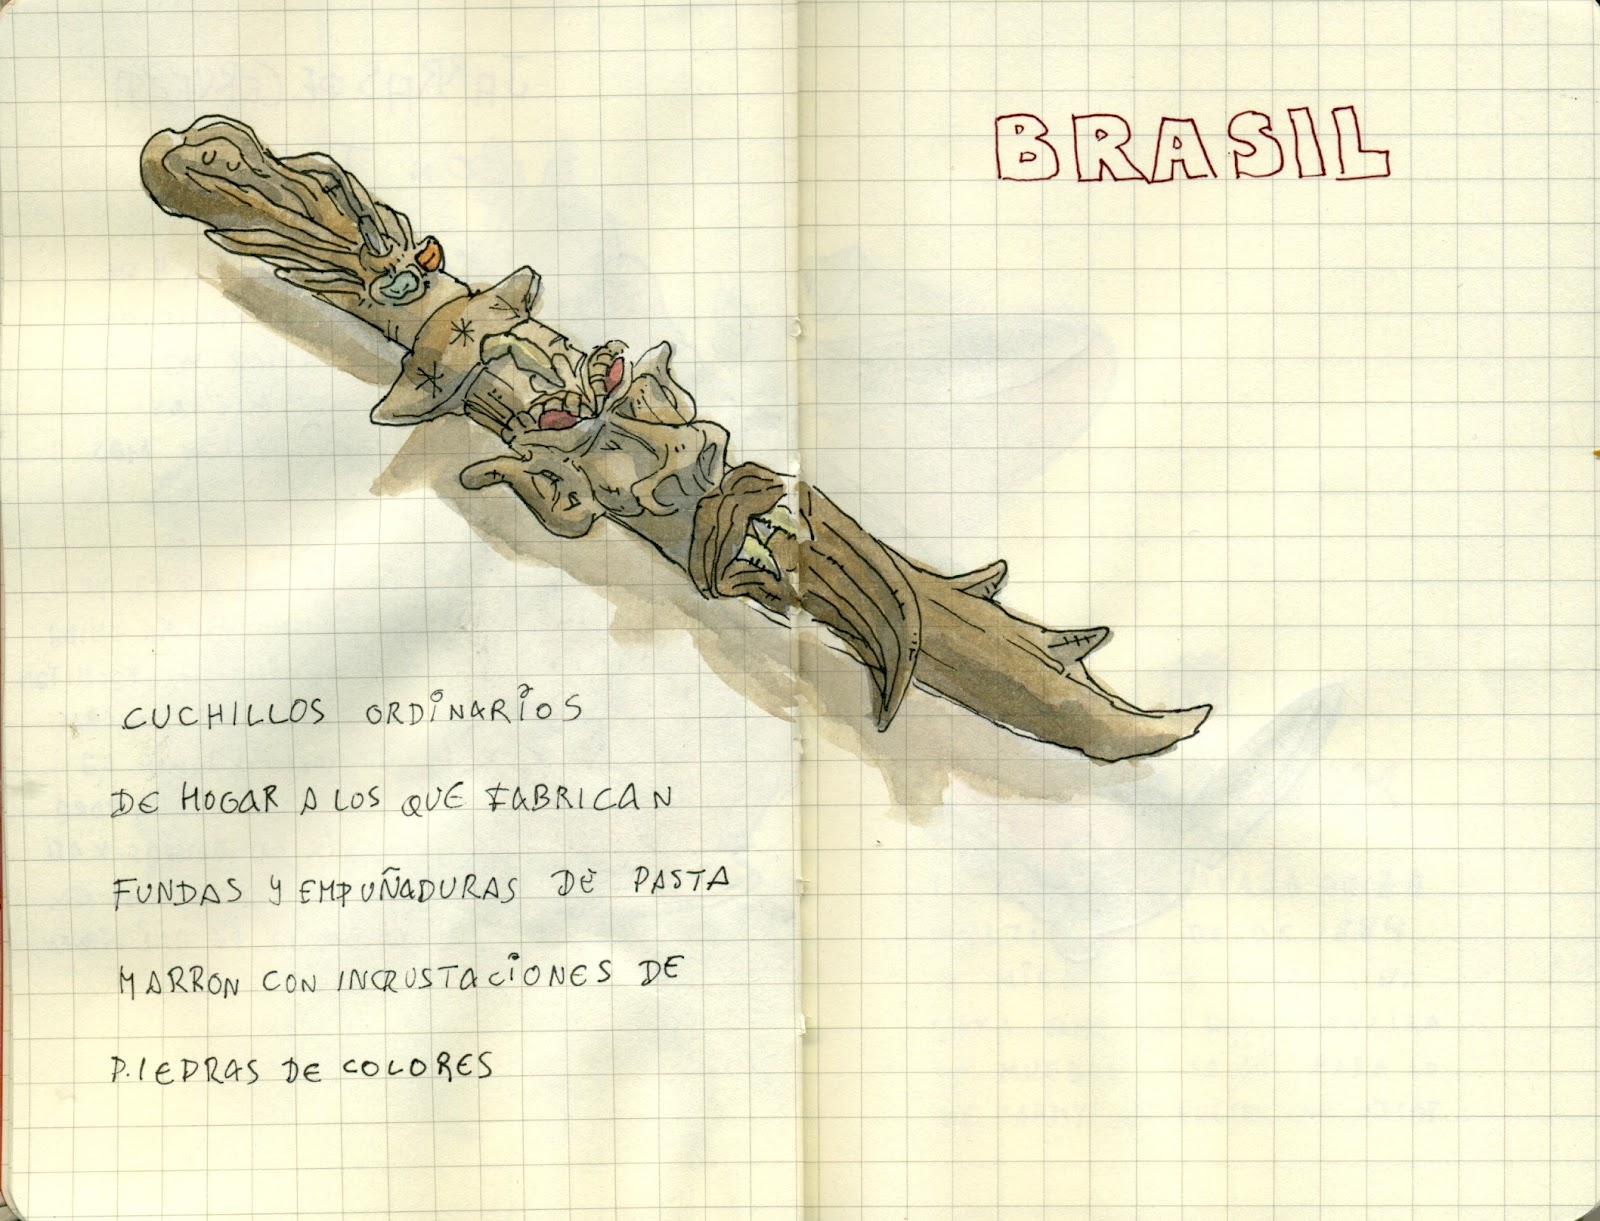 BRASIL
CUCHILLOS ORDINARIOS
DE HOGAR A LOS QUE FABRICAN
FUNDAS Y EMPUÑADURAS DE PASTA
MARRON CON INCRUSTACIONES DE
PIEDRAS DE COLORES